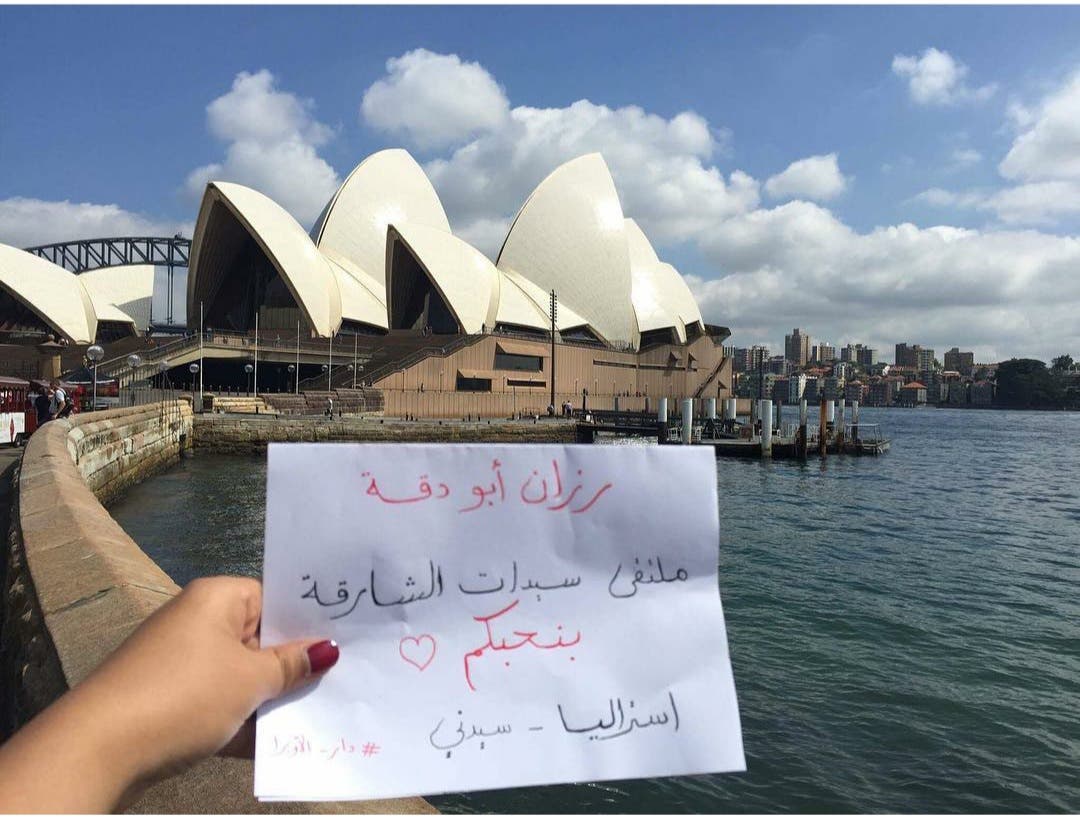 رزان أبو دقة
ملتقى سيدات الشارقة
بنحبكم ♡
استراليا - سيدني
#دار_الأوبرا